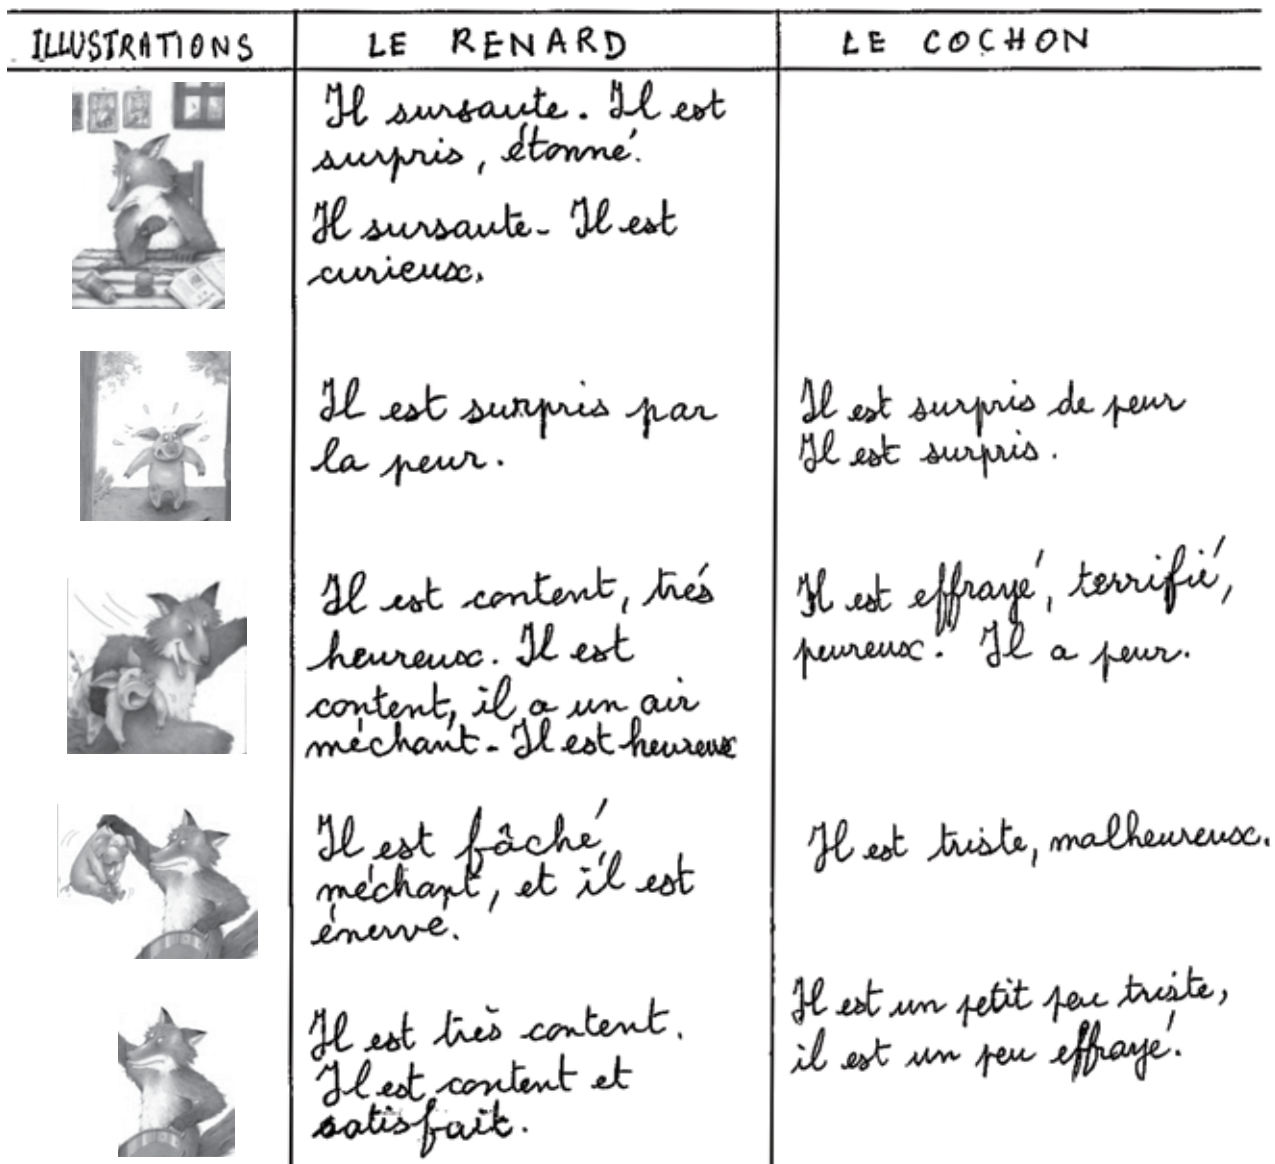 ILLUSTRATIONS LE RENARD LE COCHON
Il sursaute. Il est
surpris, étonné.
Il sursaute. Il est
curieux.
Il est surpris par
la peur.
Il est surpris de peur
Il est surpris.
Il est content, trés
heureux. Il est
content, il a un air
méchant. Il est heureux
Il est effrayé, terrifié,
peureux. Il a peur.
Il est fâché,
méchant, et il est
énervé.
Il est triste, malheureux.
Il est très content.
Il est content et
satisfait.
Il est un petit peu triste,
il est un peu effrayé.